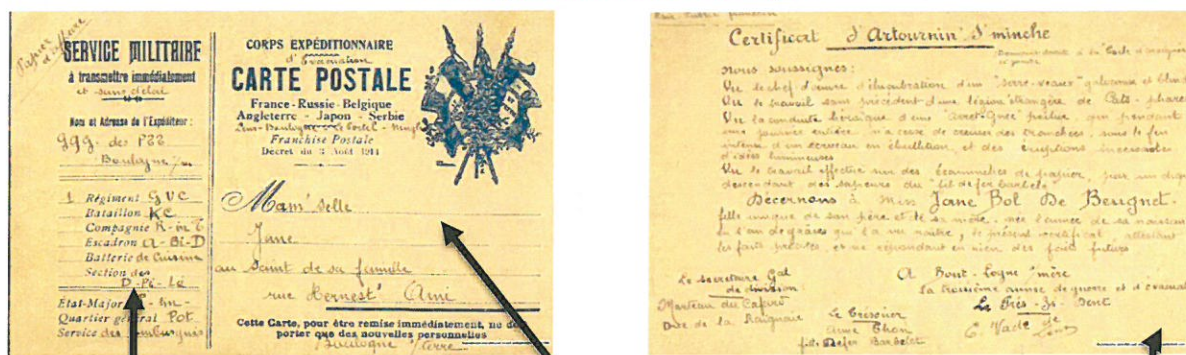 Papier d'affaire
SERVICE MILITAIRE
à transmettre immédiatement
et sans délai
Nom et Adresse de l'Expéditeur :
ggg. des P22
Boulogne s/m
1 Régiment G V C
Bataillon K C
Compagnie R - in - T
Escadron A - Bi - D
Batterie de Cuisine
Section des
D - Pé - Lé
État-Major
Quartier général Pot
Service des
CORPS EXPÉDITIONNAIRE
d'Evacuation
CARTE POSTALE
France - Russie - Belgique
Angleterre - Japon - Serbie
Franchise Postale
Décret du 3 Août 1914
Mam'selle
Jane
au saint de sa famille
rue Hernest' Ami
Cette Carte, pour être remise immédiatement, ne doit
porter que des nouvelles personnelles
Boulogne s/terre
Certificat d'Artournin d'minche
nous soussignés :
Vu le chef d'œuvre d'élucubration d'un "serre-veaux" galvanisé et
Vu le travail sans précédent d'une légion étrangère de Cats - phares
Vu la conduite héroïque d'une poilue, qui pendant
une journée entière n'a cessé de creuser des tranchées, sous le feu
intense d'un cerveau en ébullition, et des éruptions incessantes
d'idées lumineuses
Vu le travail effectué sur des de papier, par un
descendant des sapeurs du fil de fer barbelé
Décernons à Miss Jane Bol De Beugnet.
fille unique de son père et de sa mère - née l'année de sa naissance
en l'an de grâces qui l'a vu naître, le présent certificat, attestant
les faits précités, et ne répondant en rien des faits futurs
A Bout - Logne 'mère
la troisième année de guerre et d'évacuation
Le secrétaire Gal
de division
Marteau du Cap
Duc de la Raignaie
Le Trésorier
Aimé Thon
fils Defer Barbelot
Le Très - 3s - Dent
E. Vade